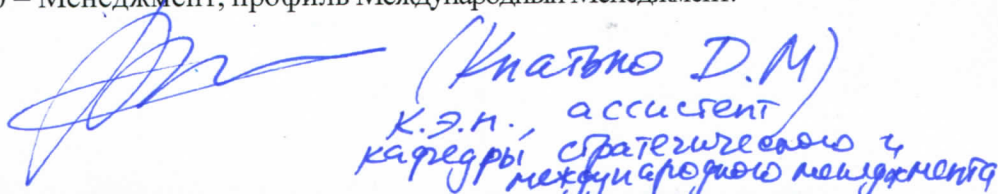 – Менеджмент, профиль Международный Менеджмент.
(Кнатько Д.М)
к.э.н., ассистент
кафедры стратегического и
международного менеджмента